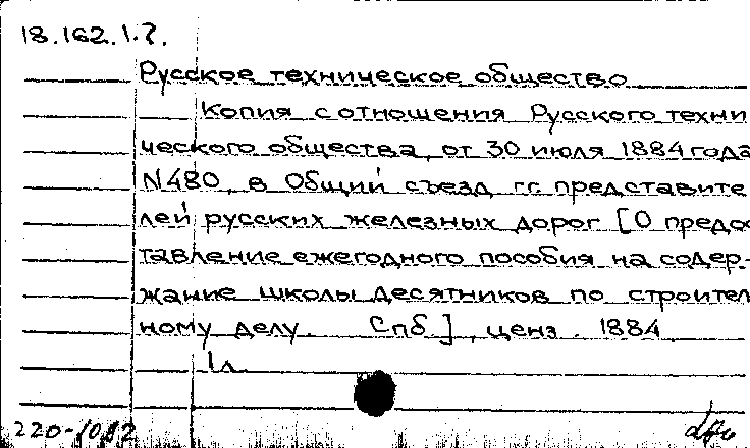 18.162.1.7.
Русское техническое общество
Копия с отношения Русского техни
ческого общества, от 30 июля 1884 года
N480, в Общий съезд гг. представите
лей русских железных дорог [О предос
тавление ежегодного пособия на содер-
жание школы десятников по строител
ному делу. Спб], ценз. 1884.
1л.
220-1082